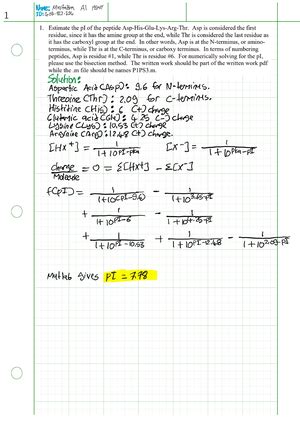 1
Name: Mustafa Al Hont
1. Estimate the pI of the peptide Asp-His-Glu-Lys-Arg-Thr. Asp is considered the first
residue, since it has the amine group at the end, while Thr is considered the last residue as
it has the carboxyl group at the end. In other words, Asp is at the N-terminus, or amino-
terminus, while Thr is at the C-terminus, or carboxy terminus. In terms of numbering
peptides, Asp is residue #1, while Thr is residue #6. For numerically solving for the pI,
please use the bisection method. The written work should be part of the written work pdf
while the .m file should be names P1PS3.m.
Solution:
Aspartic Acid (Asp): 9.6 for N-terminis.
Threonine (Thr): 2.09 for C-terminis.
Histidine (His): 6 (+) charge
Glutamic acid (Glu): 4.25 (-) charge
Lysine (Lys): 10.53 (+) charge.
Arginine (Arg): 12.48 (+) charge.
[HX+] = 1/1+10^pI-pKa [X-] = 1/1+10^pKa-pI
charge/Molecule = 0 = Σ[HX+] - Σ[X-]
f(pI) = 1/1+10^(pI-9.6) - 1/1+10^3.65-pI
+ 1/1+10^pI-6 - 1/1+10^4.25-pI
+ 1/1+10^pI-10.53 + 1/1+10^pI-12.48 - 1/1+10^2.09-pI
Matlab gives pI = 7.78